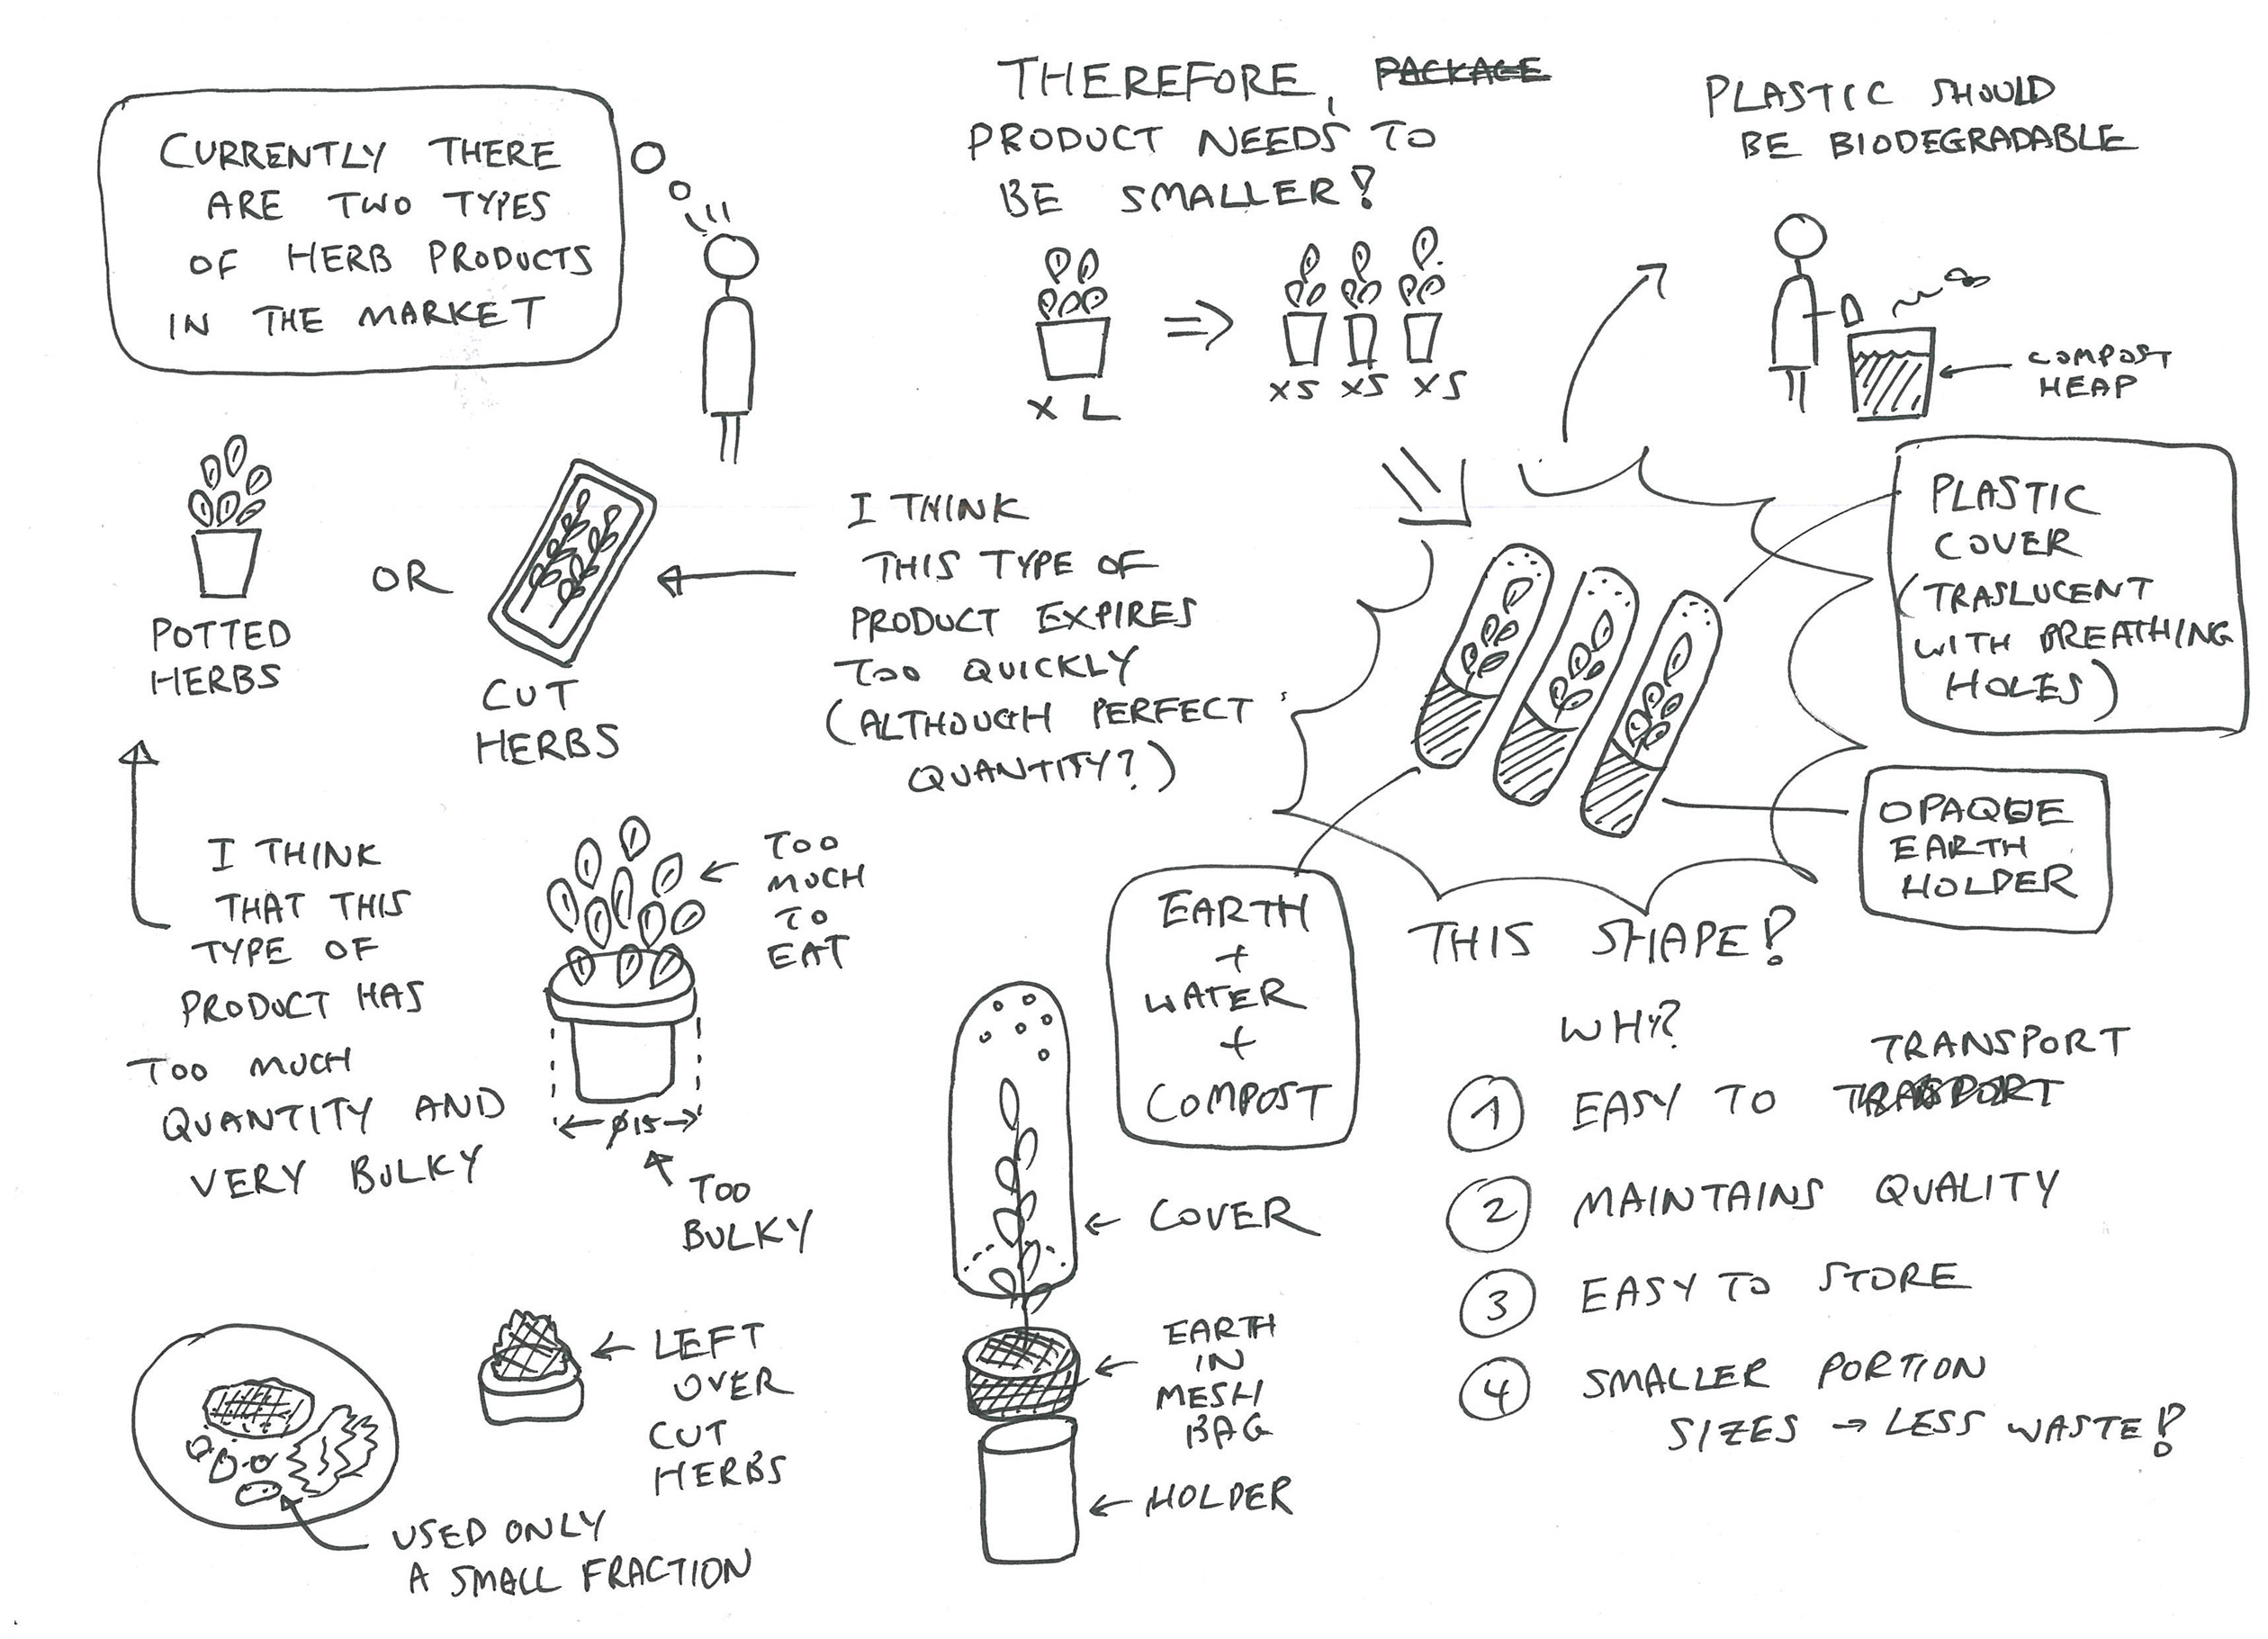 CURRENTLY THERE
ARE TWO TYPES
OF HERB PRODUCTS
IN THE MARKET
POTTED
HERBS
OR
CUT
HERBS
I THINK
THIS TYPE OF
PRODUCT EXPIRES
TOO QUICKLY
(ALTHOUGH PERFECT
QUANTITY?)
I THINK
THAT THIS
TYPE OF
PRODUCT HAS
TOO MUCH
QUANTITY AND
VERY BULKY
TOO
MUCH
TO
EAT
Ø15
TOO
BULKY
LEFT
OVER
CUT
HERBS
USED ONLY
A SMALL FRACTION
THEREFORE, PACKAGE
PRODUCT NEEDS TO
BE SMALLER!
XL
XS XS XS
PLASTIC SHOULD
BE BIODEGRADABLE
COMPOST
HEAP
PLASTIC
COVER
(TRASLUCENT
WITH BREATHING
HOLES)
OPAQUE
EARTH
HOLDER
EARTH
+
WATER
+
COMPOST
COVER
EARTH
IN
MESH
BAG
HOLDER
THIS SHAPE!
WHY?
TRANSPORT
1 EASY TO TRASPORT
2 MAINTAINS QUALITY
3 EASY TO STORE
4 SMALLER PORTION
SIZES → LESS WASTE!